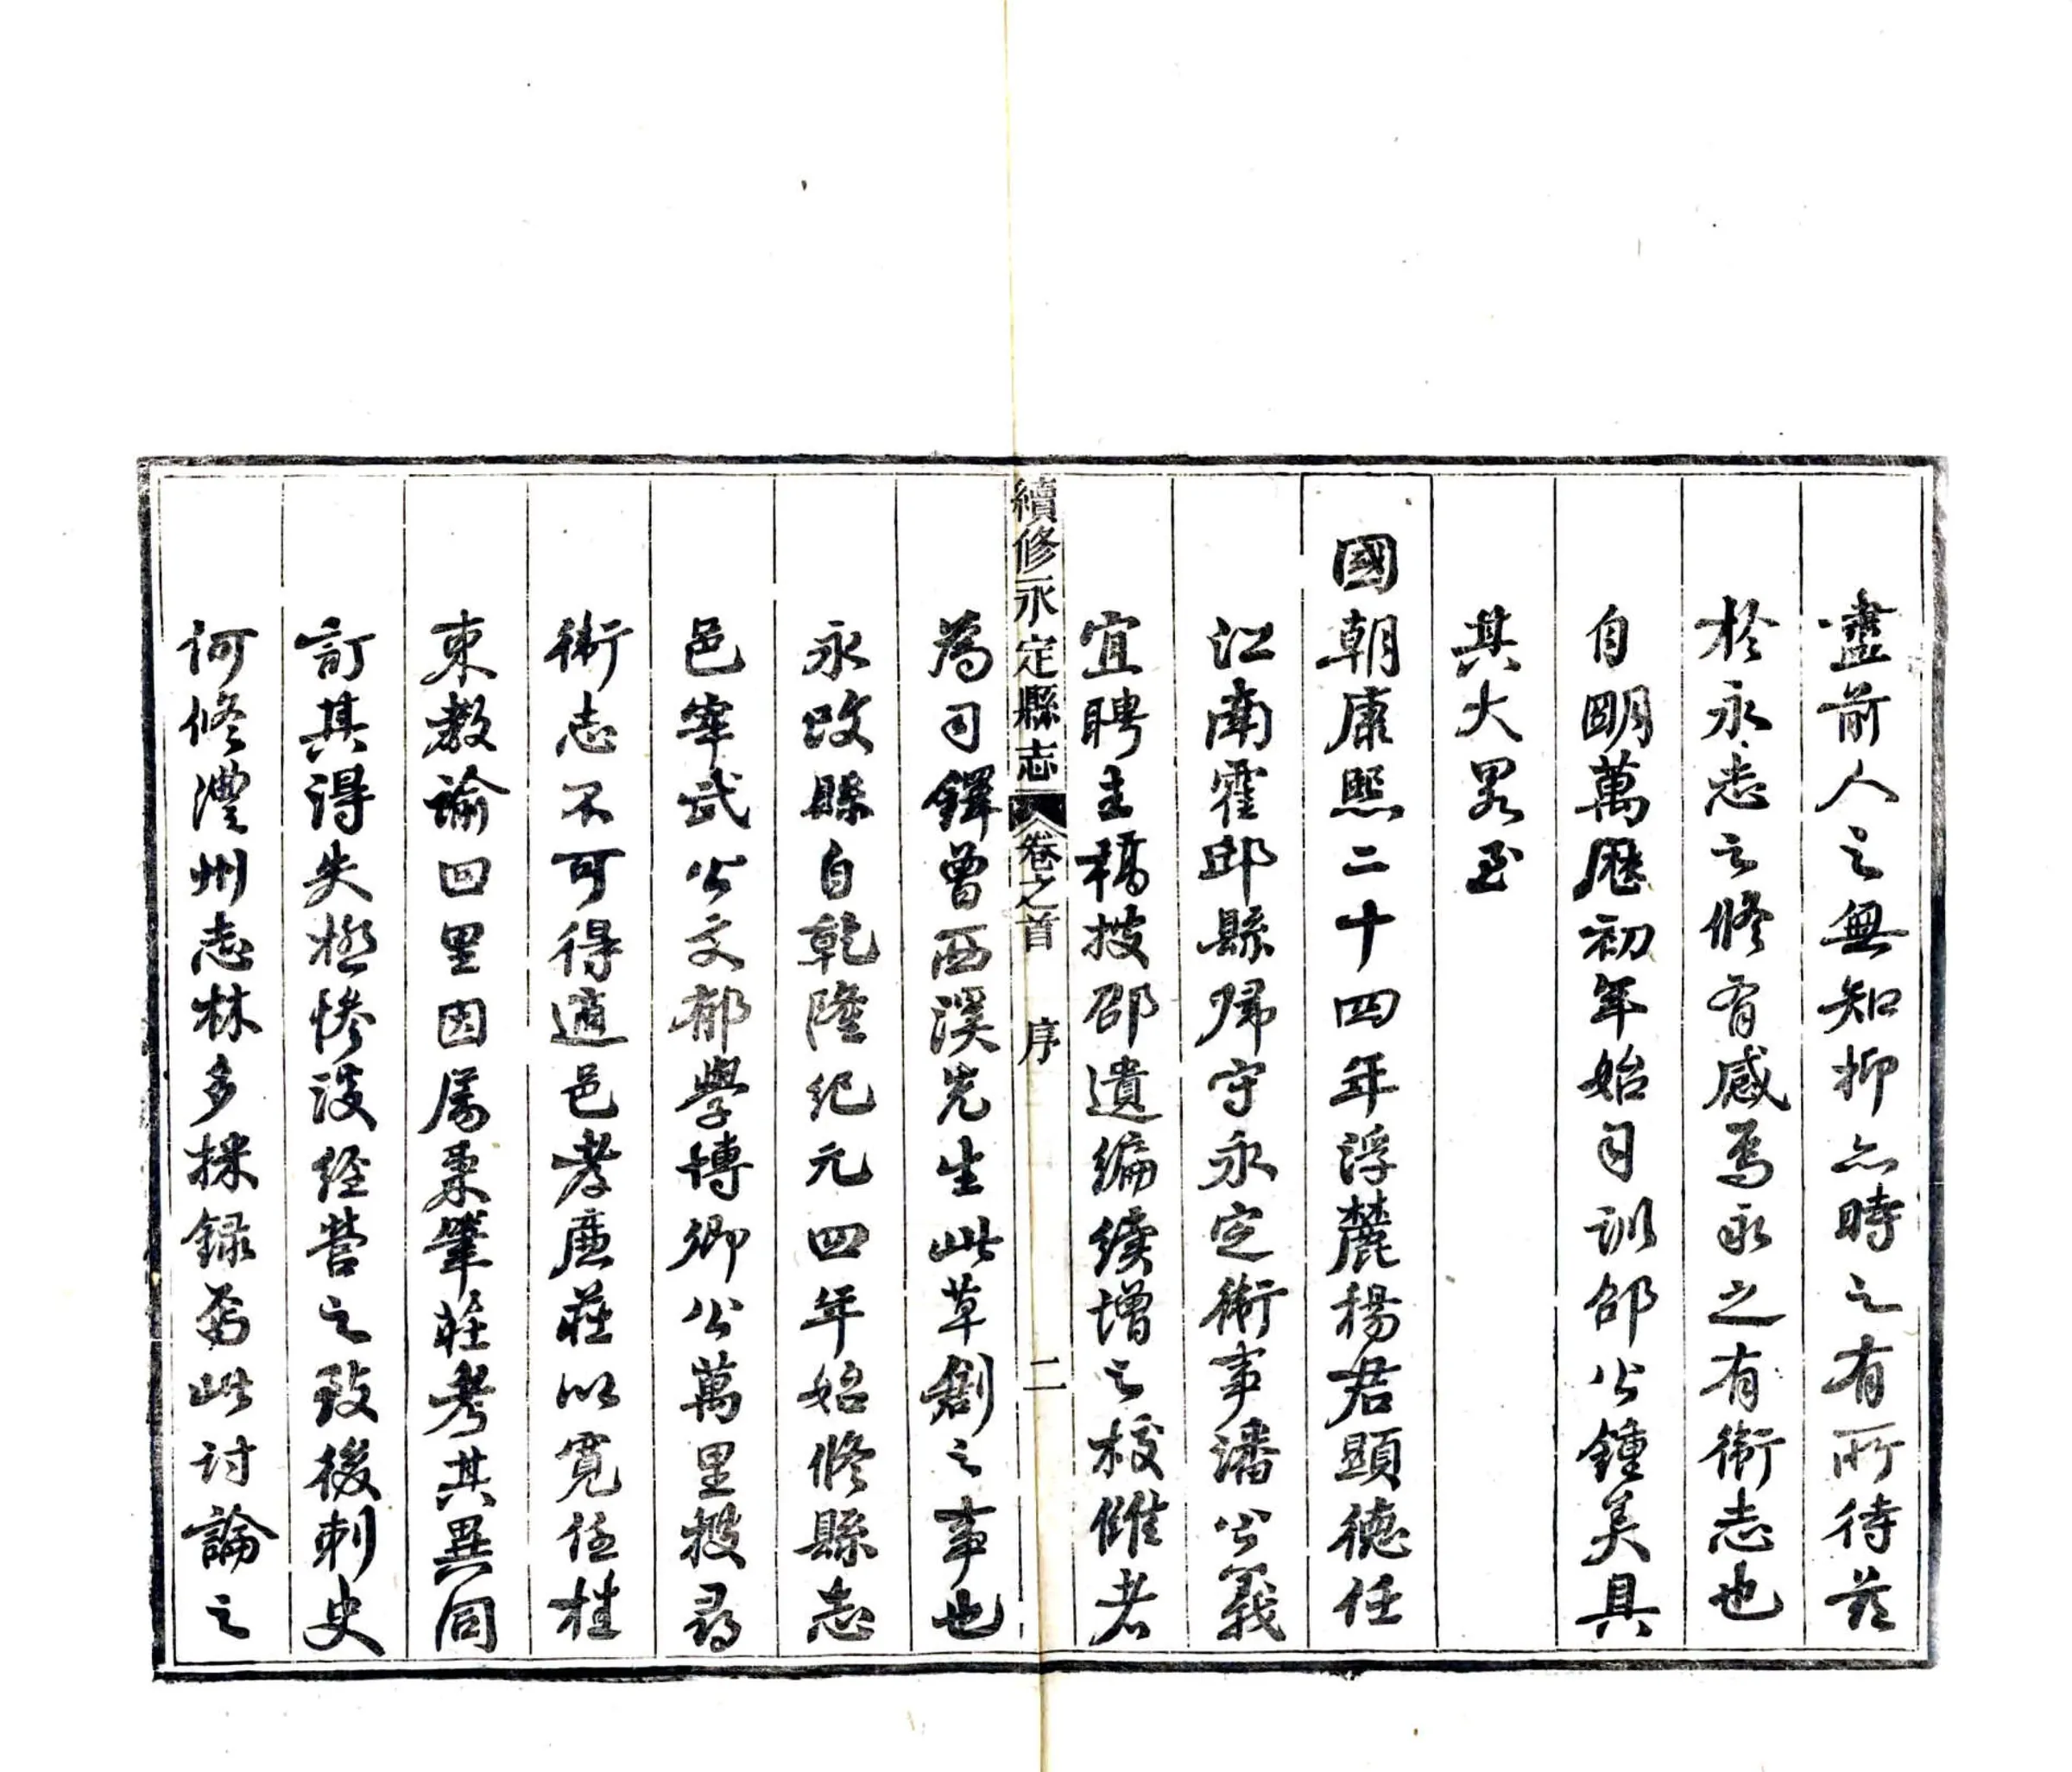 盡前人之無知抑亦時之有所待茲
於永志之修有感焉永之有衛志也
自明萬歷初年始司訓邵公鍾美具
其大畧至
國朝康熙二十四年浮麓楊君顯德任
江南霍邱縣歸守永定衛事潘公義
宜聘主稿搜邵遺編續增之校讎者
為司鐸曾西溪先生此草創之事也
續修永定縣志 卷之首 序 二
永改縣自乾隆紀元四年始修縣志
邑宰武公文郁學博卿公萬里搜尋
衛志不可得適邑孝廉莊以寬任桂
東教諭回里因屬秉筆莊考其異同
訂其得失極慘淡經營之致後刺史
何修澧州志林多採錄焉此討論之